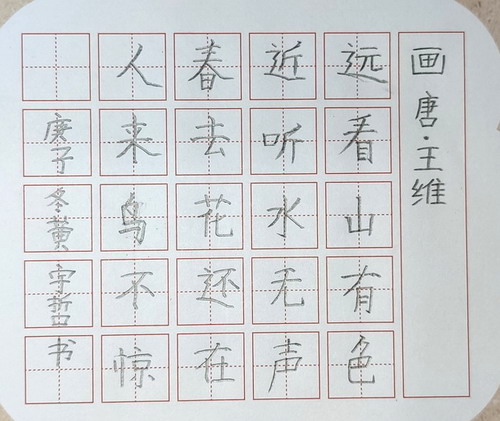 画 唐·王维
远看山有色
近听水无声
春去花还在
人来鸟不惊
庚子冬黄宇哲书